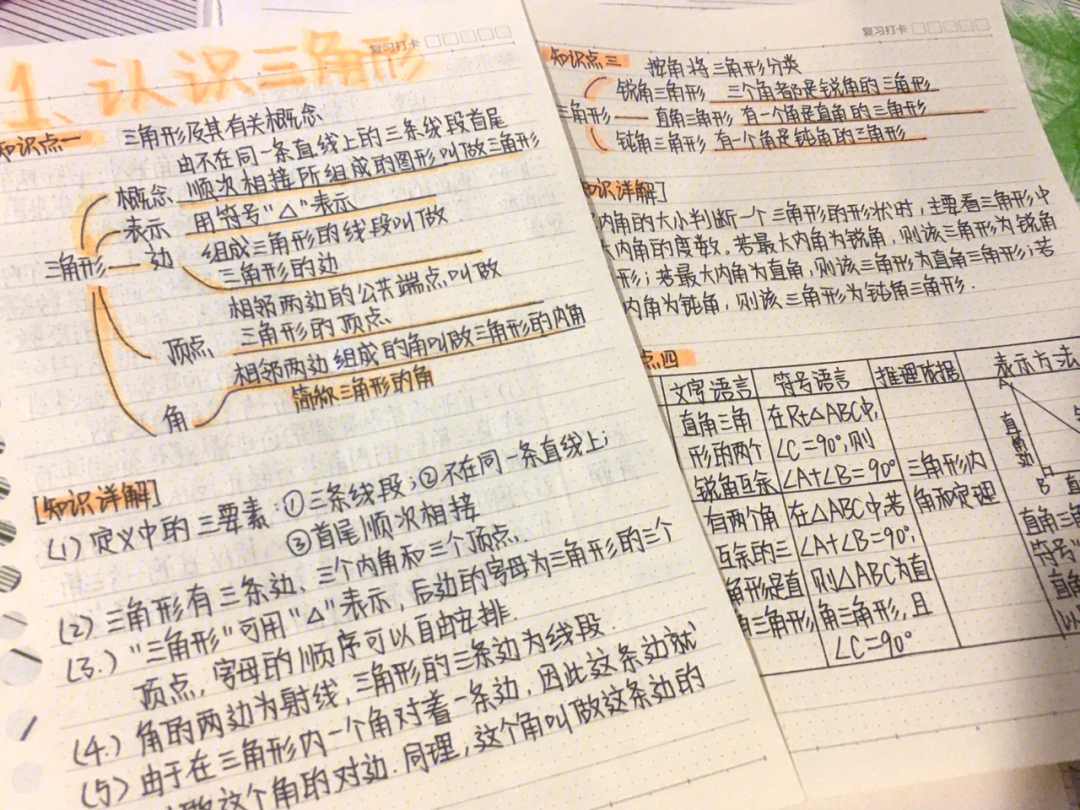 复习打卡
1、认识三角形
知识点一 三角形及其有关概念
由不在同一条直线上的三条线段首尾
概念、顺次相接所组成的图形叫做三角形
表示 用符号“△”表示
组成三角形的线段叫做
三角形 边
三角形的边
相邻两边的公共端点叫做
顶点、三角形的顶点
相邻两边组成的角叫做三角形的内角
简称三角形的角
角
[知识详解]
(1) 定义中的三要素:①三条线段;②不在同一条直线上;
③首尾顺次相接
(2) 三角形有三条边、三个内角和三个顶点、
(3.) “三角形”可用“△”表示,后边的字母为三角形的三个
顶点,字母的顺序可以自由安排.
(4.) 角的两边为射线,三角形的三条边为线段
(5) 由于在三角形内一个角对着一条边,因此这条边就
这个角的对边.同理,这个角叫做这条边的
复习打卡
知识点三 按角将三角形分类
锐角三角形 三个角都是锐角的三角形
三角形 直角三角形 有一个角是直角的三角形
钝角三角形 有一个角是钝角的三角形
知识详解]
内角的大小判断一个三角形的形状时,主要看三角形中
大内角的度数。若最大内角为锐角,则该三角形为锐角
形;若最大内角为直角,则该三角形为直角三角形;若
内角为钝角,则该三角形为钝角三角形.
点四
文字语言 符号语言 推理依据 表示方法
直角三角
形的两个
锐角互余
在Rt△ABC中,
∠C=90°,则
∠A+∠B=90°
三角形内
角和定理
有两个角
互余的三
角形是直
角三角形
在△ABC中若
∠A+∠B=90°,
则△ABC为直
角三角形,且
∠C=90°
A
直角边
B
直角三角
符号“
直角
以